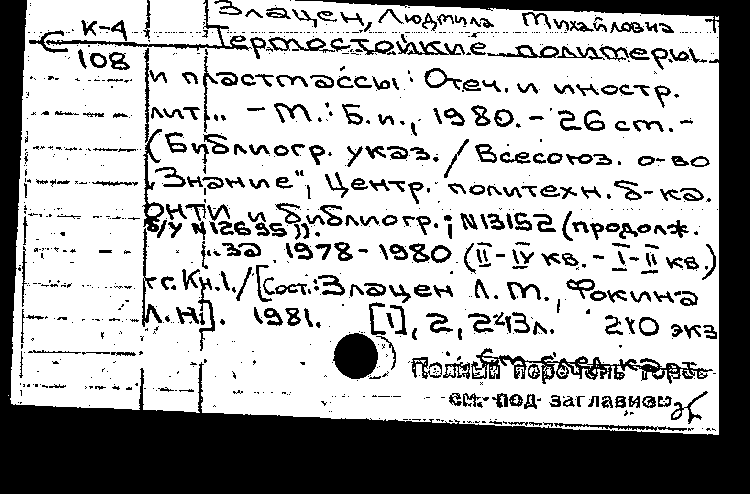 Злацен, Людмила Михайловна
К-4
108
Термостойкие полимеры
и пластмассы: Отеч. и иностр.
лит... – М.: Б.и., 1980. – 26 см. –
(Библиогр. указ. / Всесоюз. о-во
„Знание", Центр. политехн. б-ка.
ОНТИ и библиогр.; N13152 (продолж.
б/у N12695)).
...за 1978-1980 (II-IV кв. - I-II кв.)
гг. Кн.1. / [Сост.: Злацен Л.М., Фокина
Л.Н.]. 1981. [1], 2, 243л. 210 экз
См. след. карт.
Полный перечень
см. под заглавием